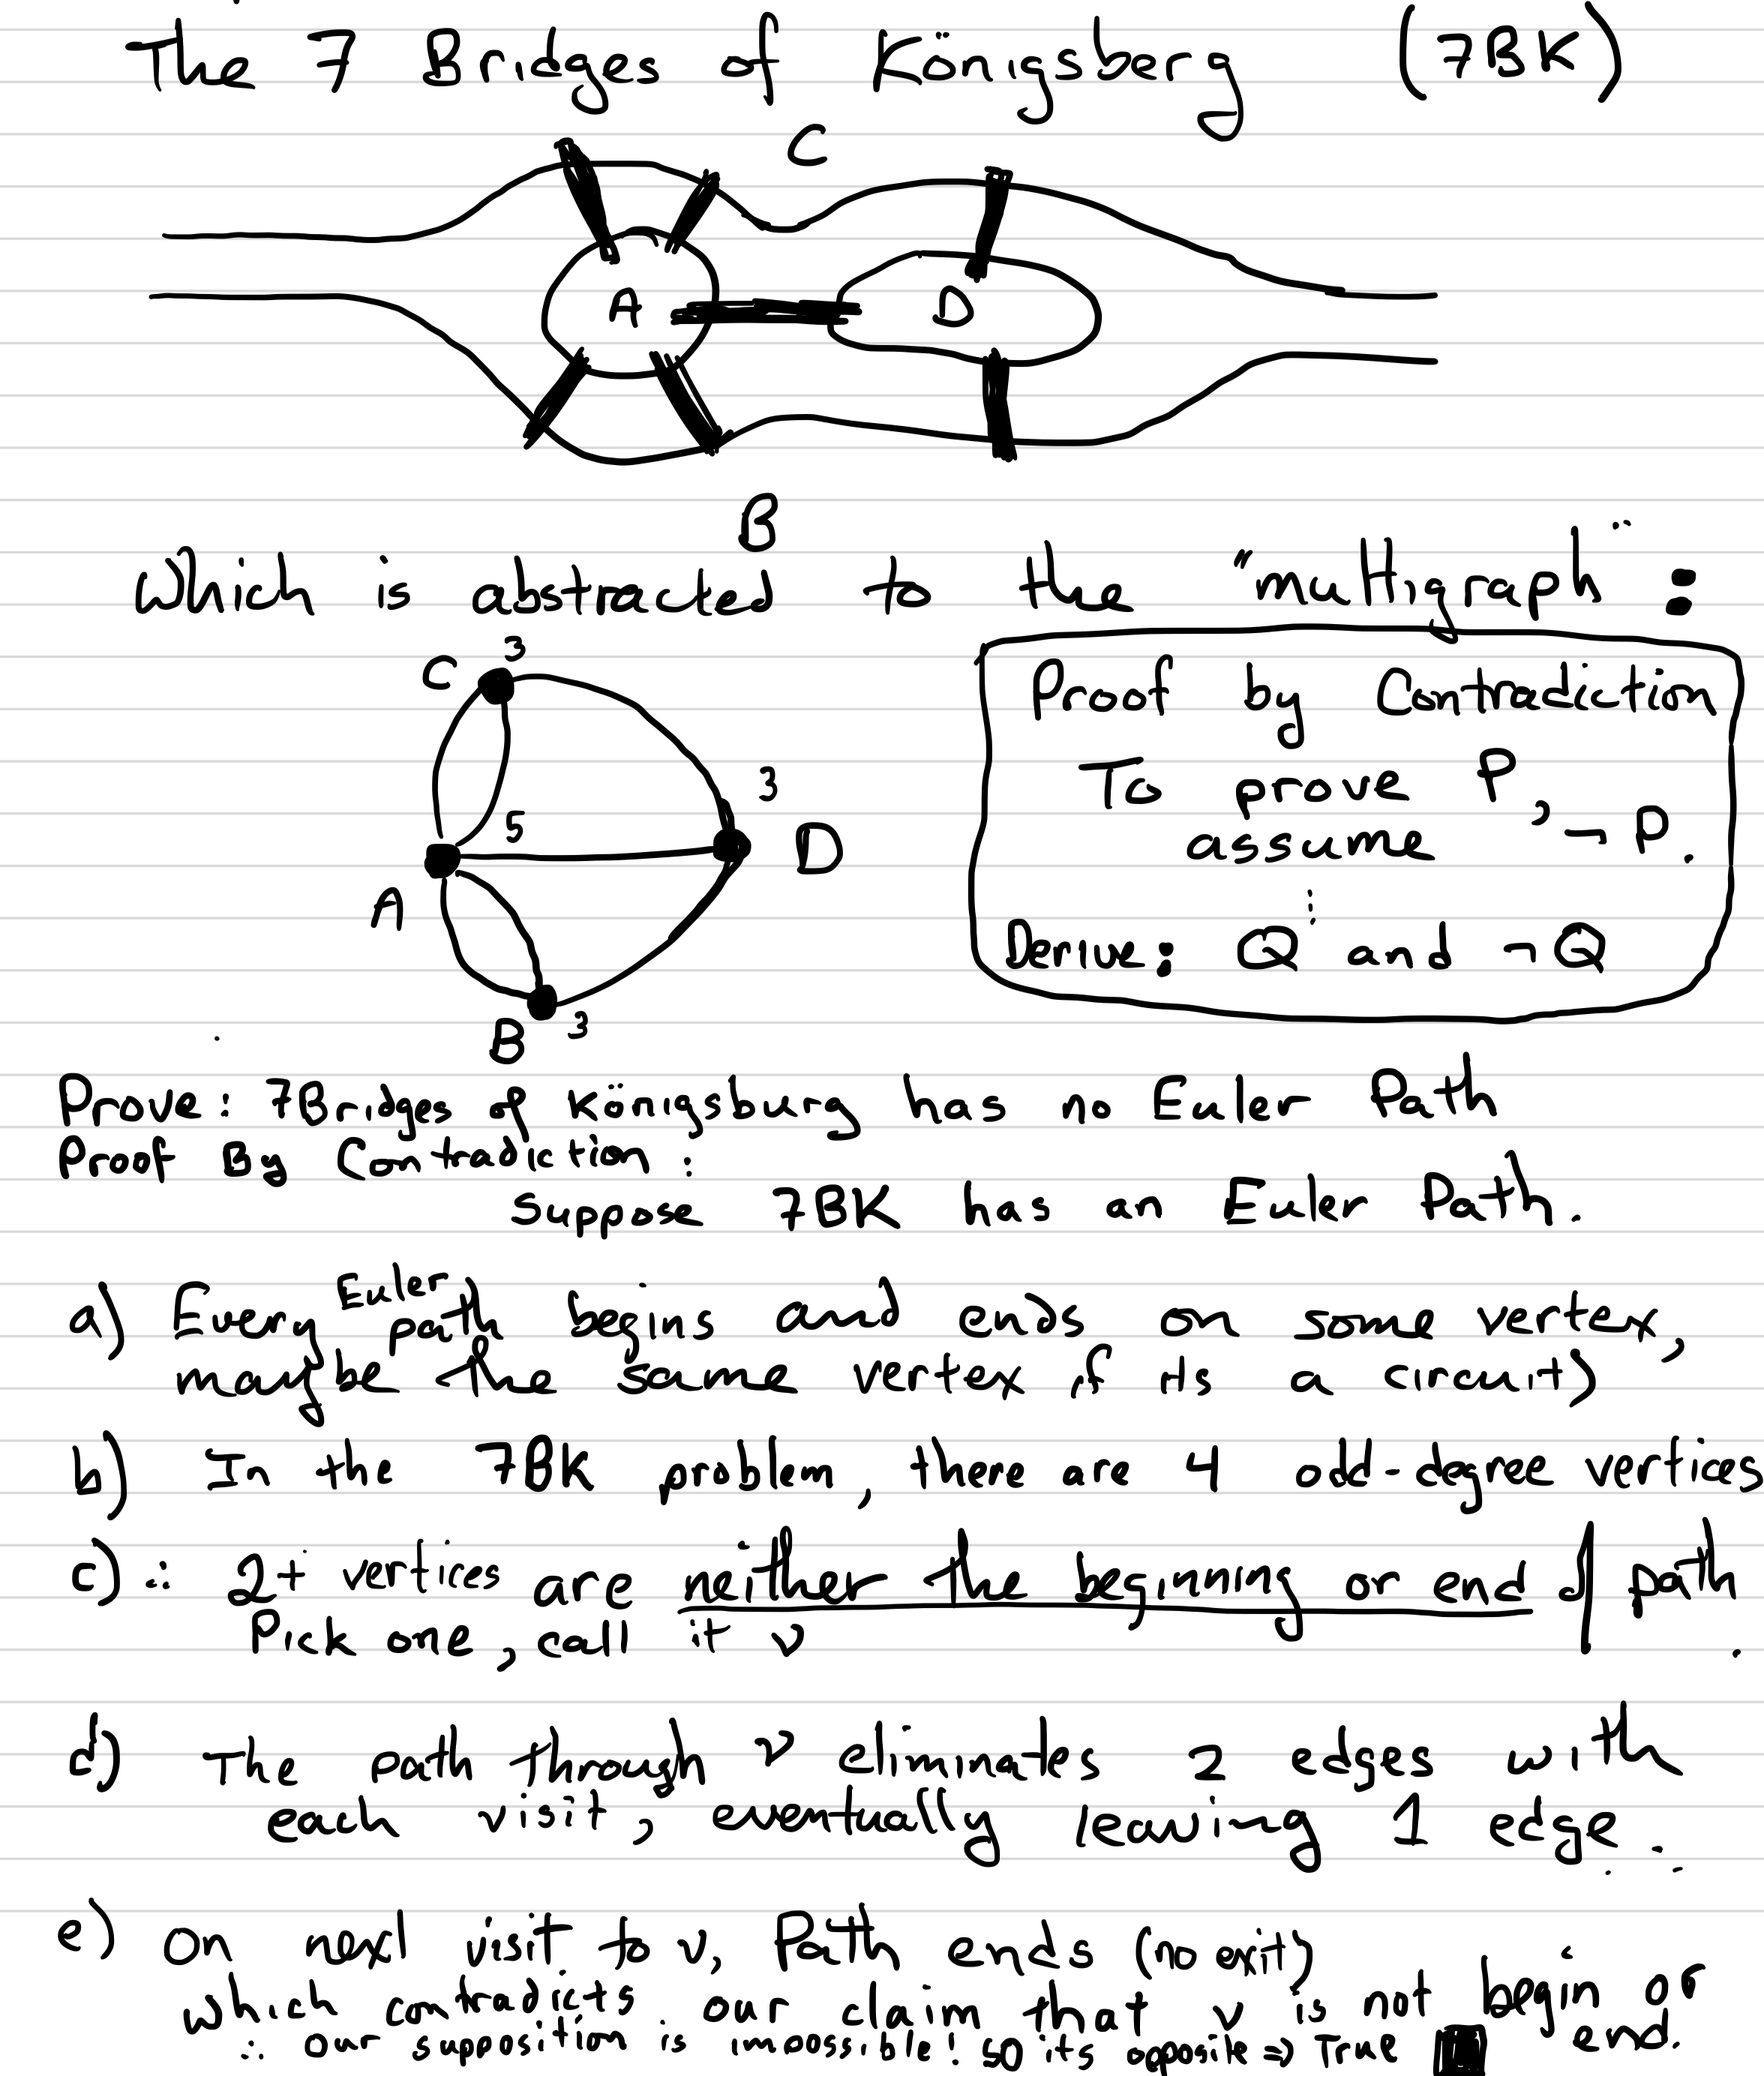 The 7 Bridges of Königsberg (7BK)
C
A D
B
Which is abstracted to the "multigraph":
C 3
3
5
D
A
B 3
Proof by Contradiction
To prove P,
assume ¬P.
⋮
Derive: Q and ¬Q
Prove: 7Bridges of Königsburg has no Euler Path
Proof By Contradiction:
Suppose 7BK has an Euler Path.
a) Every Euler path begins and ends on some vertex,
maybe the same vertex if its a circuit)
b) In the 7BK problem, there are 4 odd-degree vertices
c) ∴ 2+ vertices are neither the beginning or end of path.
Pick one, call it v
d) The path through v eliminates 2 edges with
each visit, eventually leaving 1 edge.
e) On next visit to v, Path ends (no exit)
which contradicts our claim that v is not begin or end.
∴ our supposition is impossible! so its opposite ⇒ True